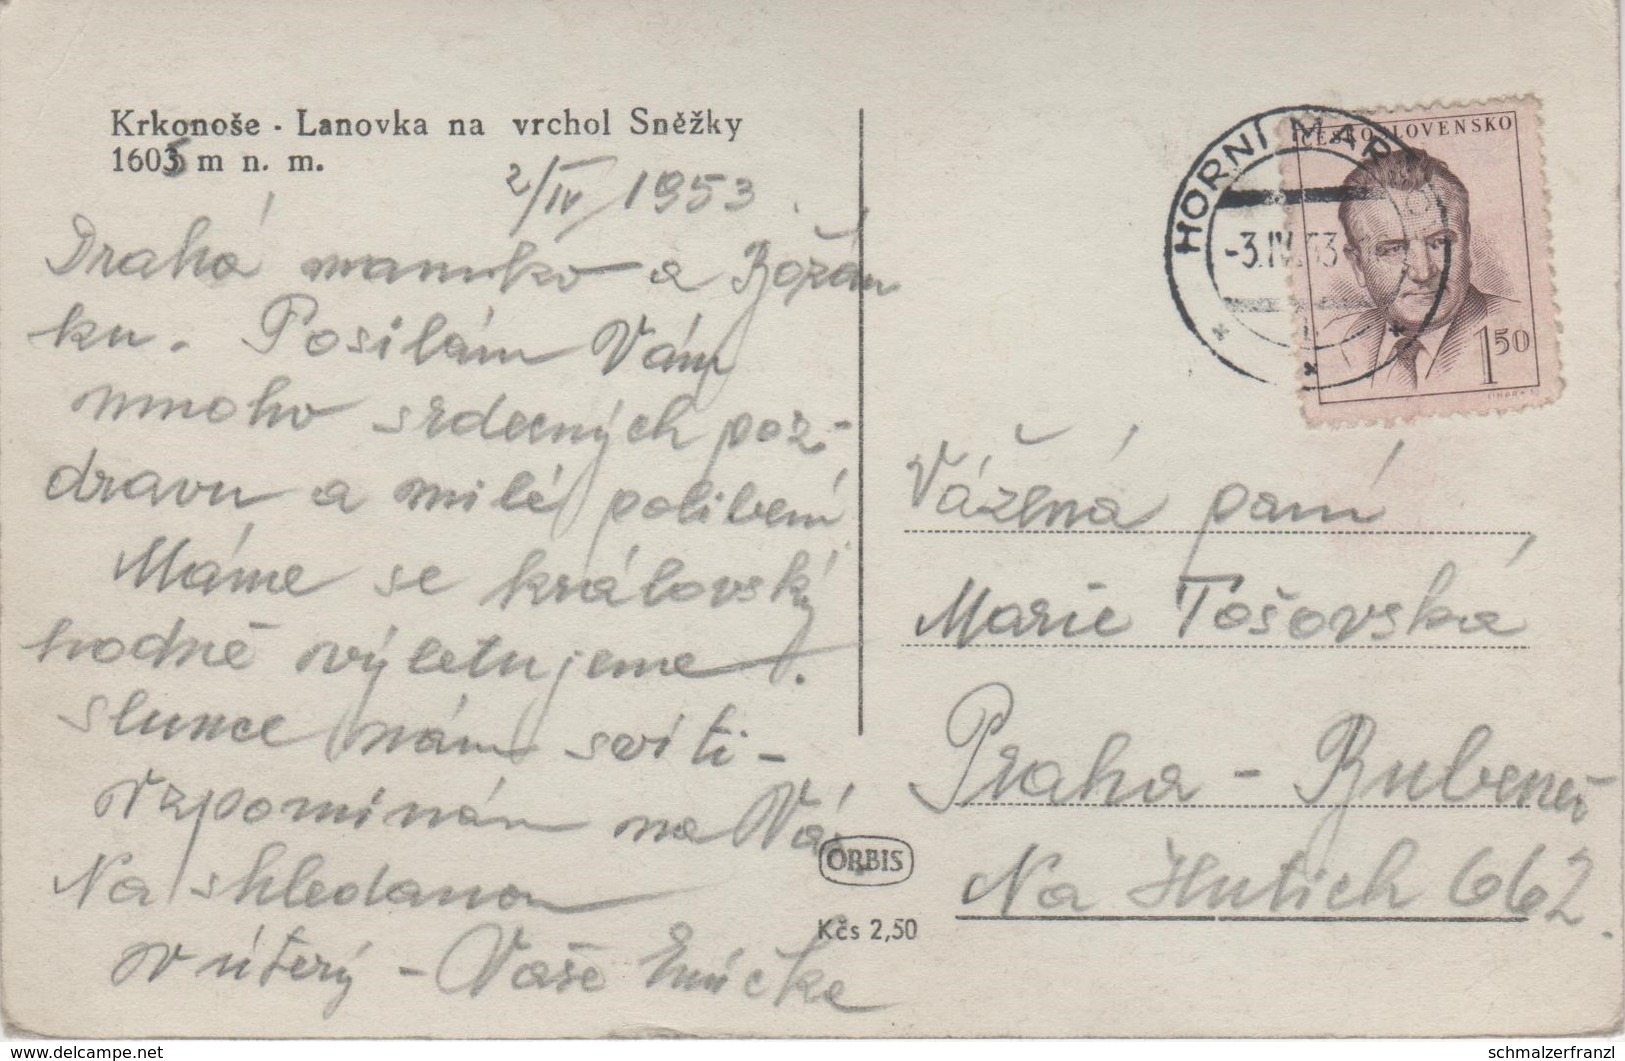 Krkonoše - Lanovka na vrchol Sněžky
1605 m n. m.
2/IV 1953
Drahá maminko a Božán
ku. Posílám Vám
mnoho srdečných poz-
dravu a milé políbení
Máme se královsky
hodně výletujeme.
slunce nám svítí -
vzpomínám na Vás
Na shledanou
v úterý - Vaše Emička
ORBIS
Kčs 2,50
HORNÍ MARŠ
-3.IV.53
ČESKOSLOVENSKO
1 50
Vážená paní
Marie Tošovská
Praha - Bubeneč
Na Hutích 662.
schmalzerfranzl